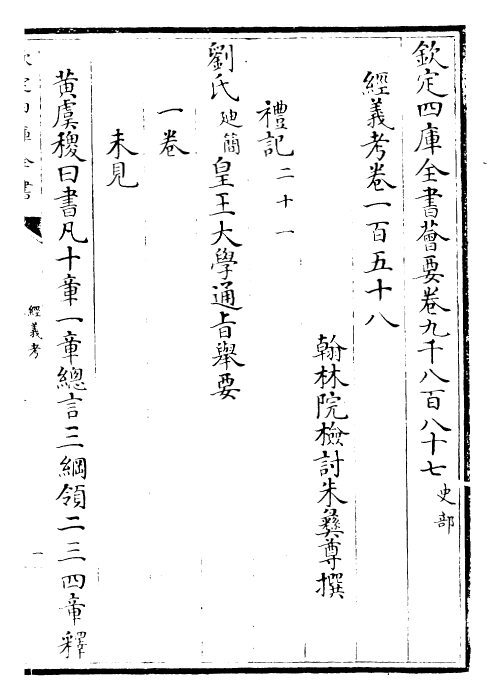 欽定四庫全書薈要卷九千八百八十七 史部
經義考卷一百五十八
翰林院檢討朱彝尊撰
禮記二十一
劉氏廸簡皇王大學通旨舉要
一卷
未見
黄虞稷曰書凡十章一章總言三綱領二三四章釋
欽定四庫全書
經義考
一